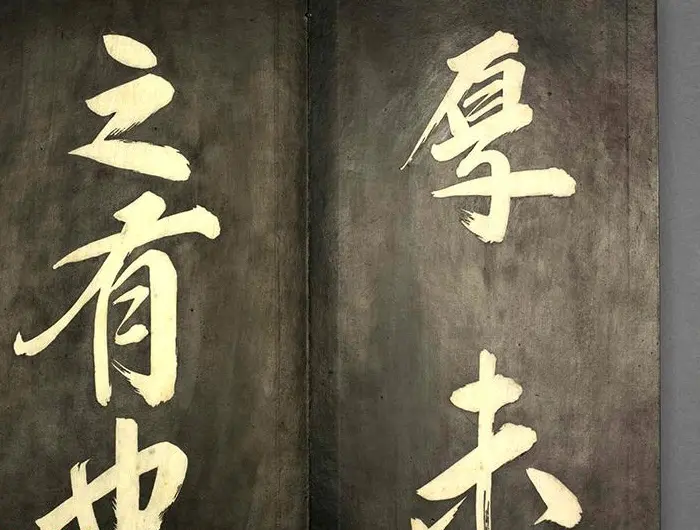 厚未
之有也